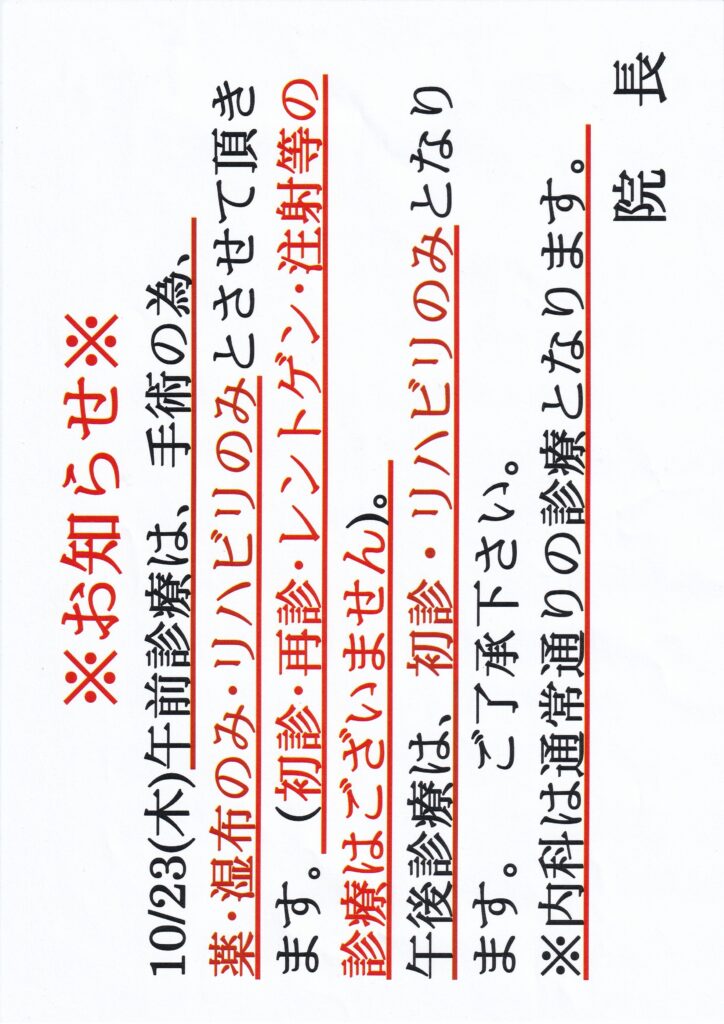 ※お知らせ※
10/23(木)午前診療は、手術の為、
薬・湿布のみ・リハビリのみとさせて頂き
ます。(初診・再診・レントゲン・注射等の
診療はございません)。
午後診療は、初診・リハビリのみとなり
ます。　ご了承下さい。
※内科は通常通りの診療となります。
院　長